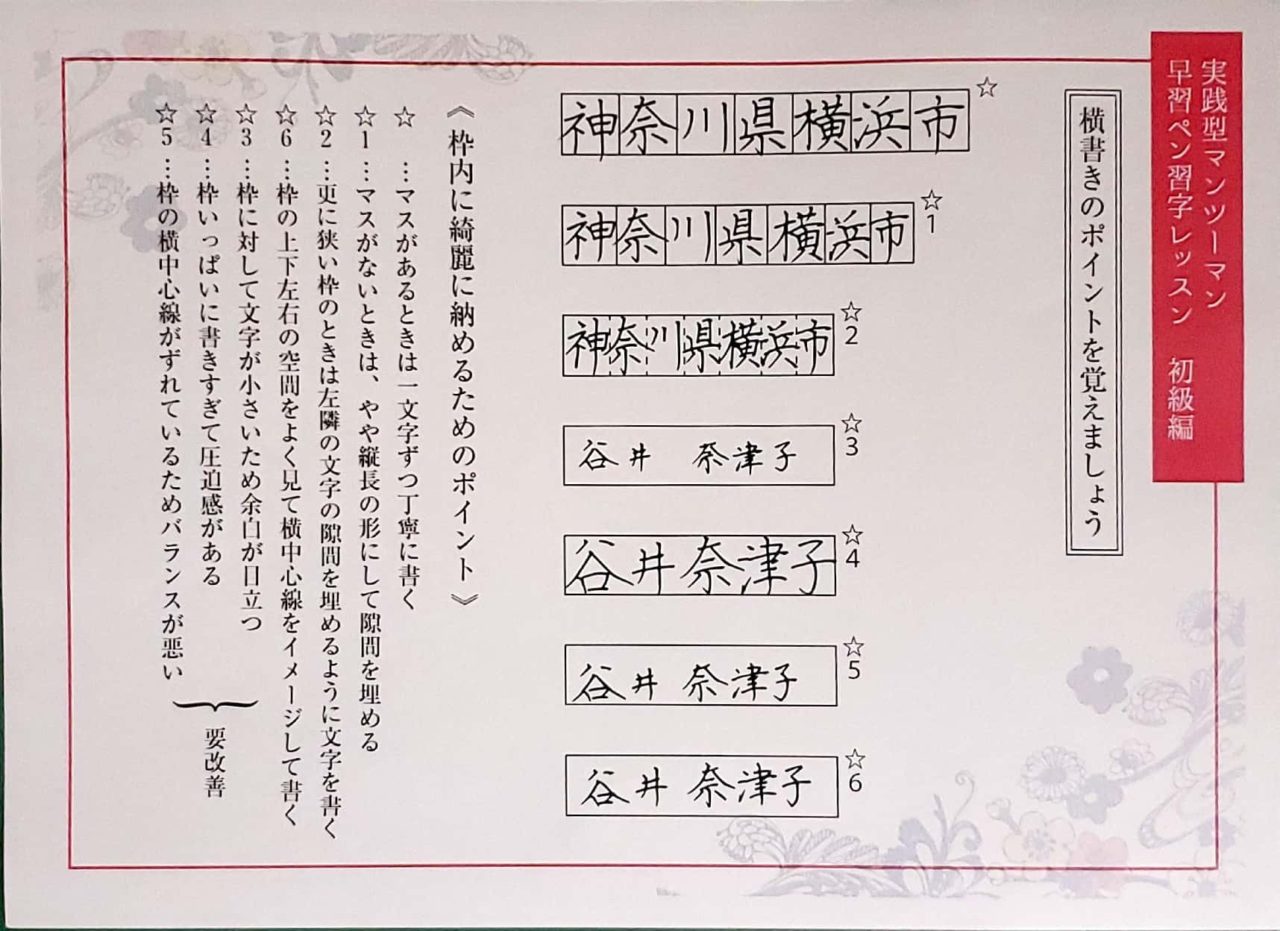 実践型マンツーマン
早習ペン習字レッスン　初級編
横書きのポイントを覚えましょう
神奈川県横浜市 ☆
神奈川県横浜市 ☆1
神奈川県横浜市 ☆2
谷井　奈津子 ☆3
谷井奈津子 ☆4
谷井 奈津子 ☆5
谷井 奈津子 ☆6
《枠内に綺麗に納めるためのポイント》
☆　…マスがあるときは一文字ずつ丁寧に書く
☆1…マスがないときは、やや縦長の形にして隙間を埋める
☆2…更に狭い枠のときは左隣の文字の隙間を埋めるように文字を書く
☆6…枠の上下左右の空間をよく見て横中心線をイメージして書く
☆3…枠に対して文字が小さいため余白が目立つ
☆4…枠いっぱいに書きすぎて圧迫感がある
☆5…枠の横中心線がずれているためバランスが悪い
要改善